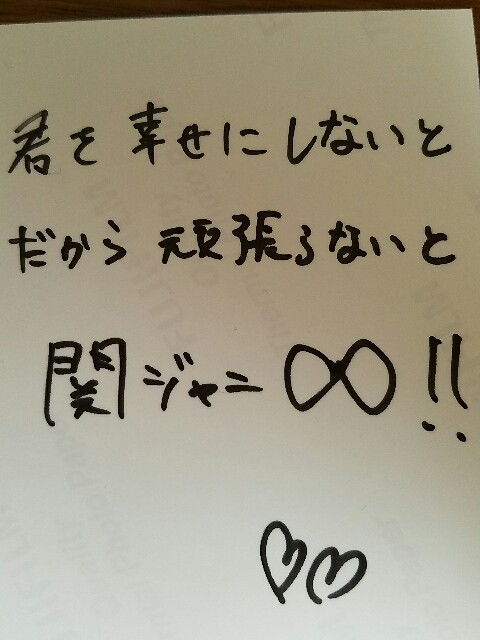 君を幸せにしないと
だから頑張らないと
関ジャニ∞!!